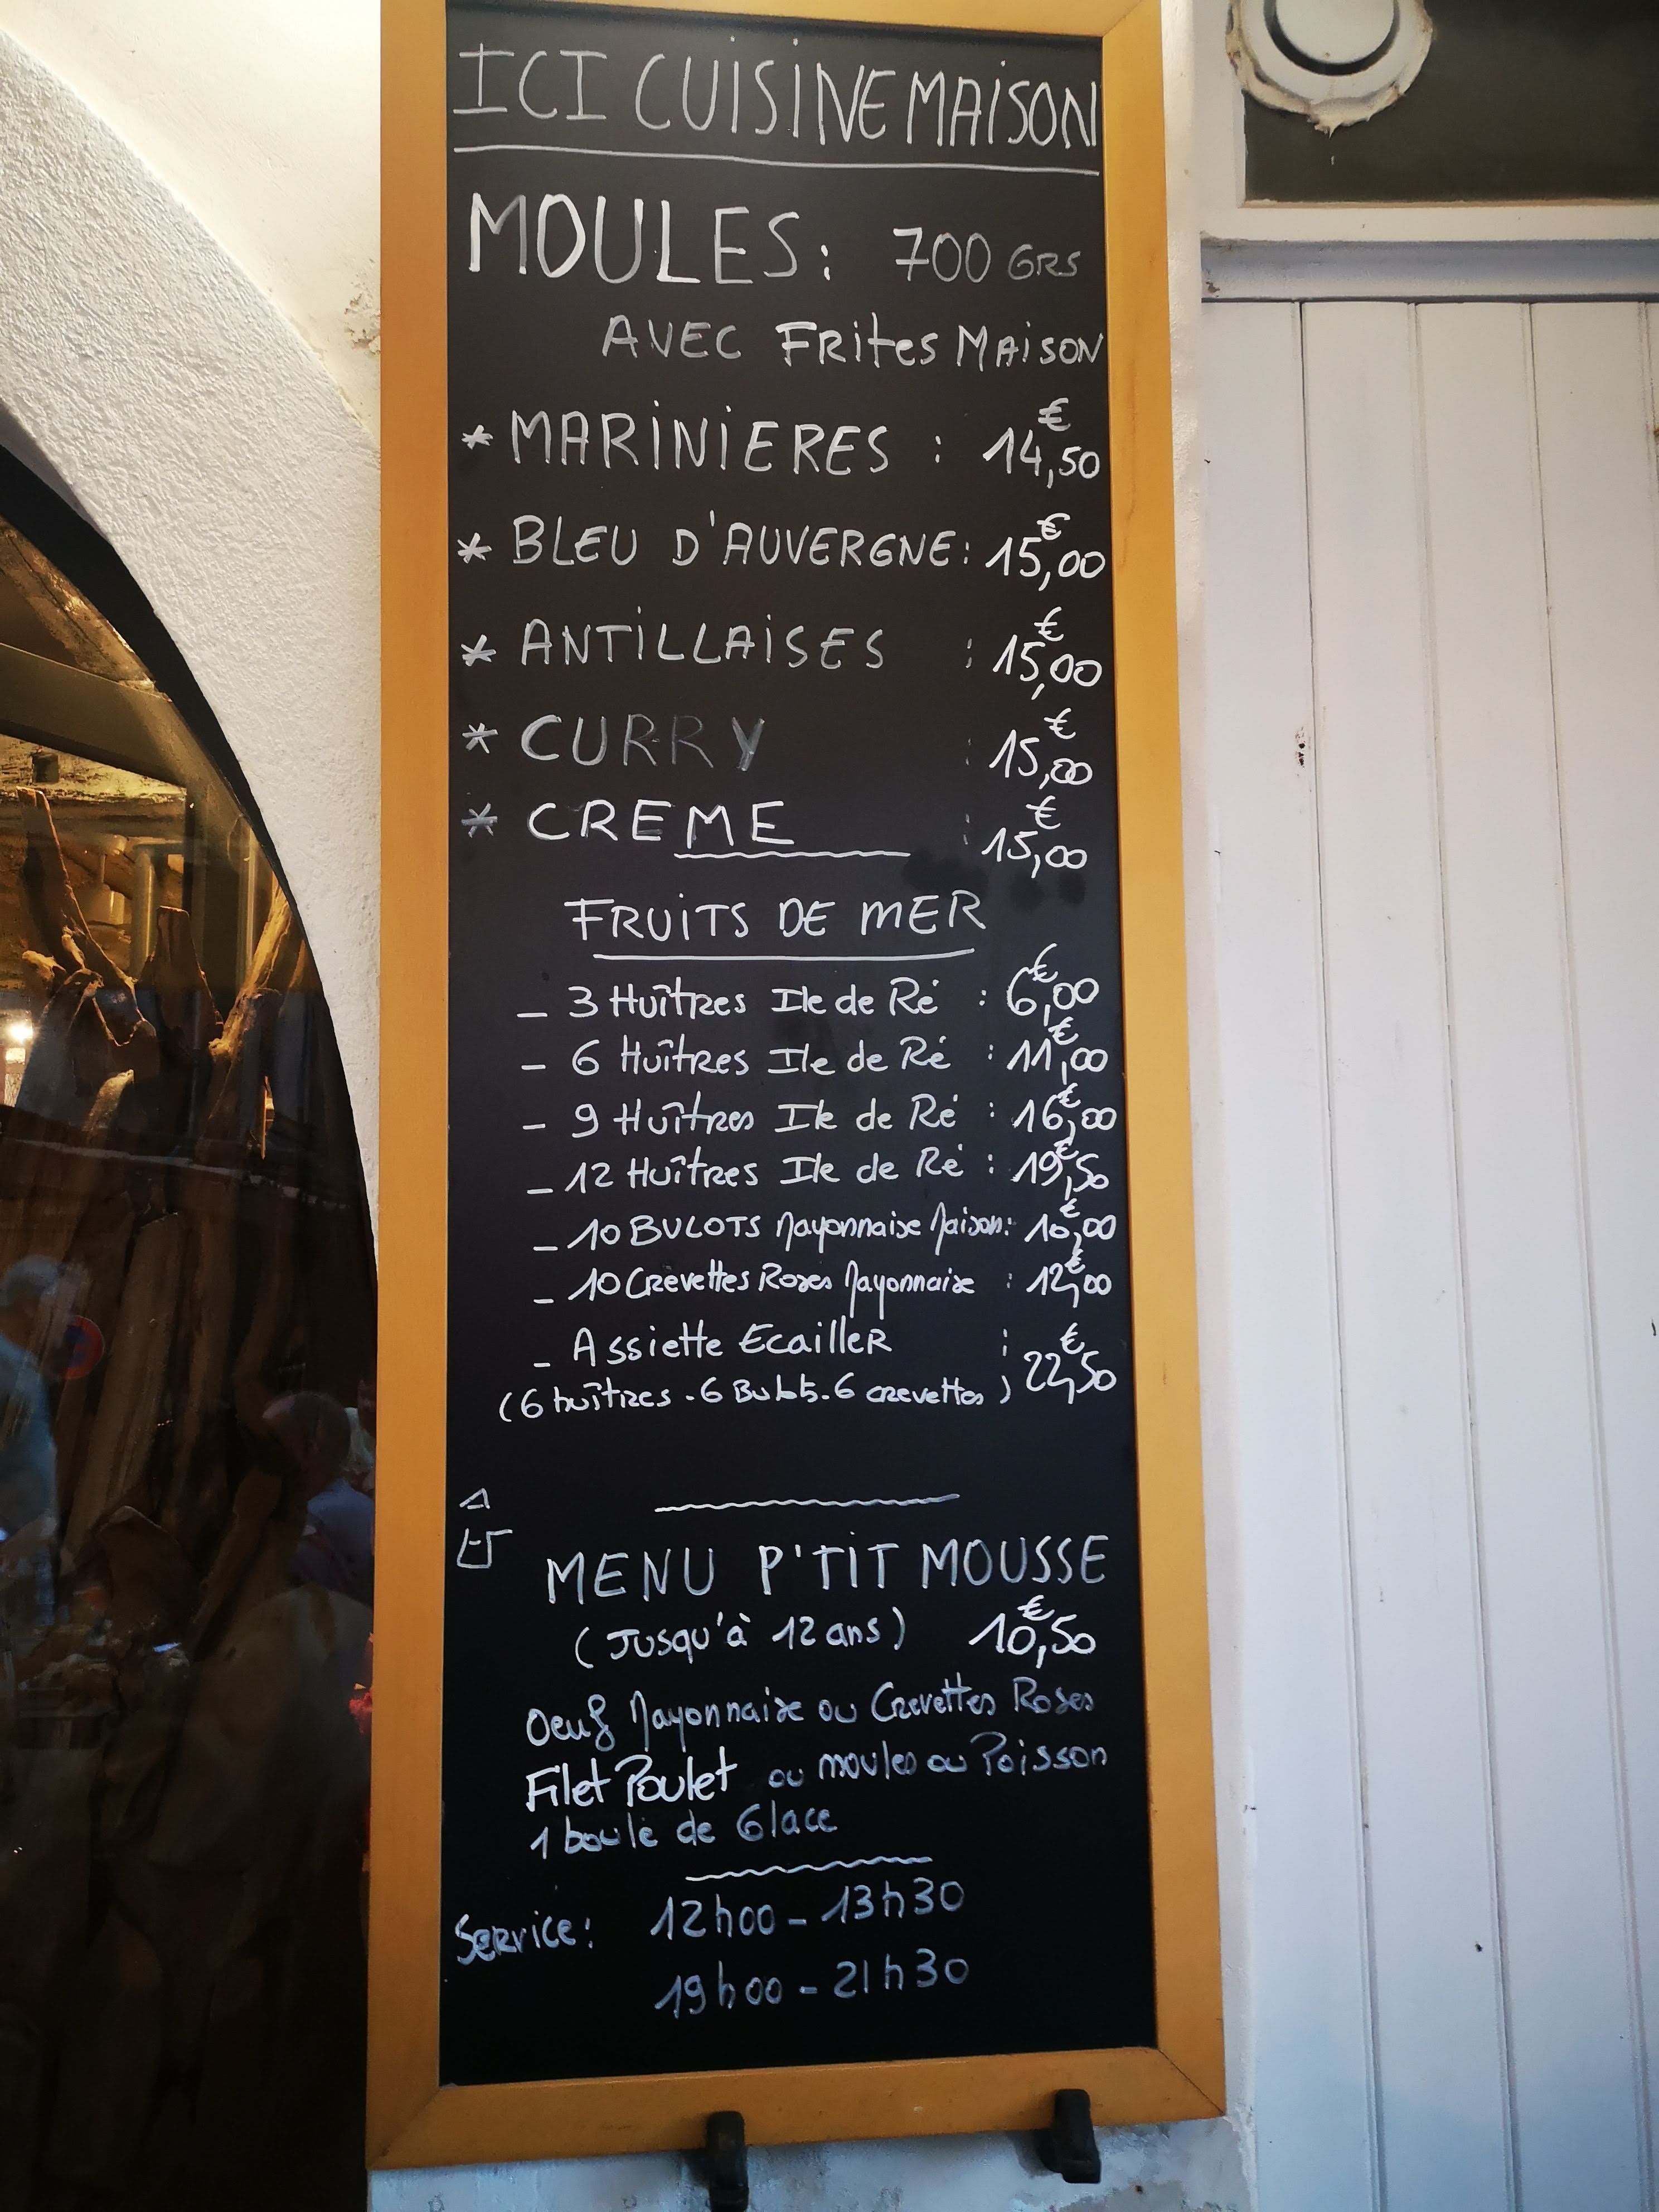 ICI CUISINE MAISON
MOULES: 700 GRS
AVEC FRites MAiSON
* MARINIERES : 14,50 €
* BLEU D'AUVERGNE: 15,00 €
* ANTILLAISES : 15,00 €
* CURRY : 15,00 €
* CREME : 15,00 €
FRUITS DE MER
_ 3 Huîtres Ile de Ré : 6,00 €
_ 6 Huîtres Ile de Ré : 11,00 €
_ 9 Huîtres Ile de Ré : 16,00 €
_ 12 Huîtres Ile de Ré : 19,50 €
_ 10 BULOTS Mayonnaise Maison: 10,00 €
_ 10 Crevettes Roses Mayonnaise : 12,00 €
_ Assiette Ecailler : 22,50 €
(6 huîtres - 6 Bulots - 6 crevettes)
MENU P'TIT MOUSSE
(Jusqu'à 12 ans) 10,50 €
Oeuf Mayonnaise ou Crevettes Roses
Filet Poulet ou moules ou Poisson
1 boule de Glace
Service: 12h00 - 13h30
19h00 - 21h30